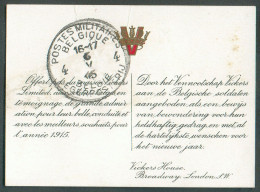 POSTES MILITAIRES
BELGIQUE
16-17
6
V
45
4 4
Offert
Limited,
témoignage de grande admir-
ation pour leur belle conduite et
avec les meilleurs souhaits pour
l'année 1915.
Door het Vennootschap Vickers
aan de Belgische soldaten
aangeboden als een bewijs
van bewondering voor hun
heldhaftig gedrag en met al
de hartelijkste wenschen voor
het nieuwe jaar.
Vickers House,
Broadway, London, S.W.